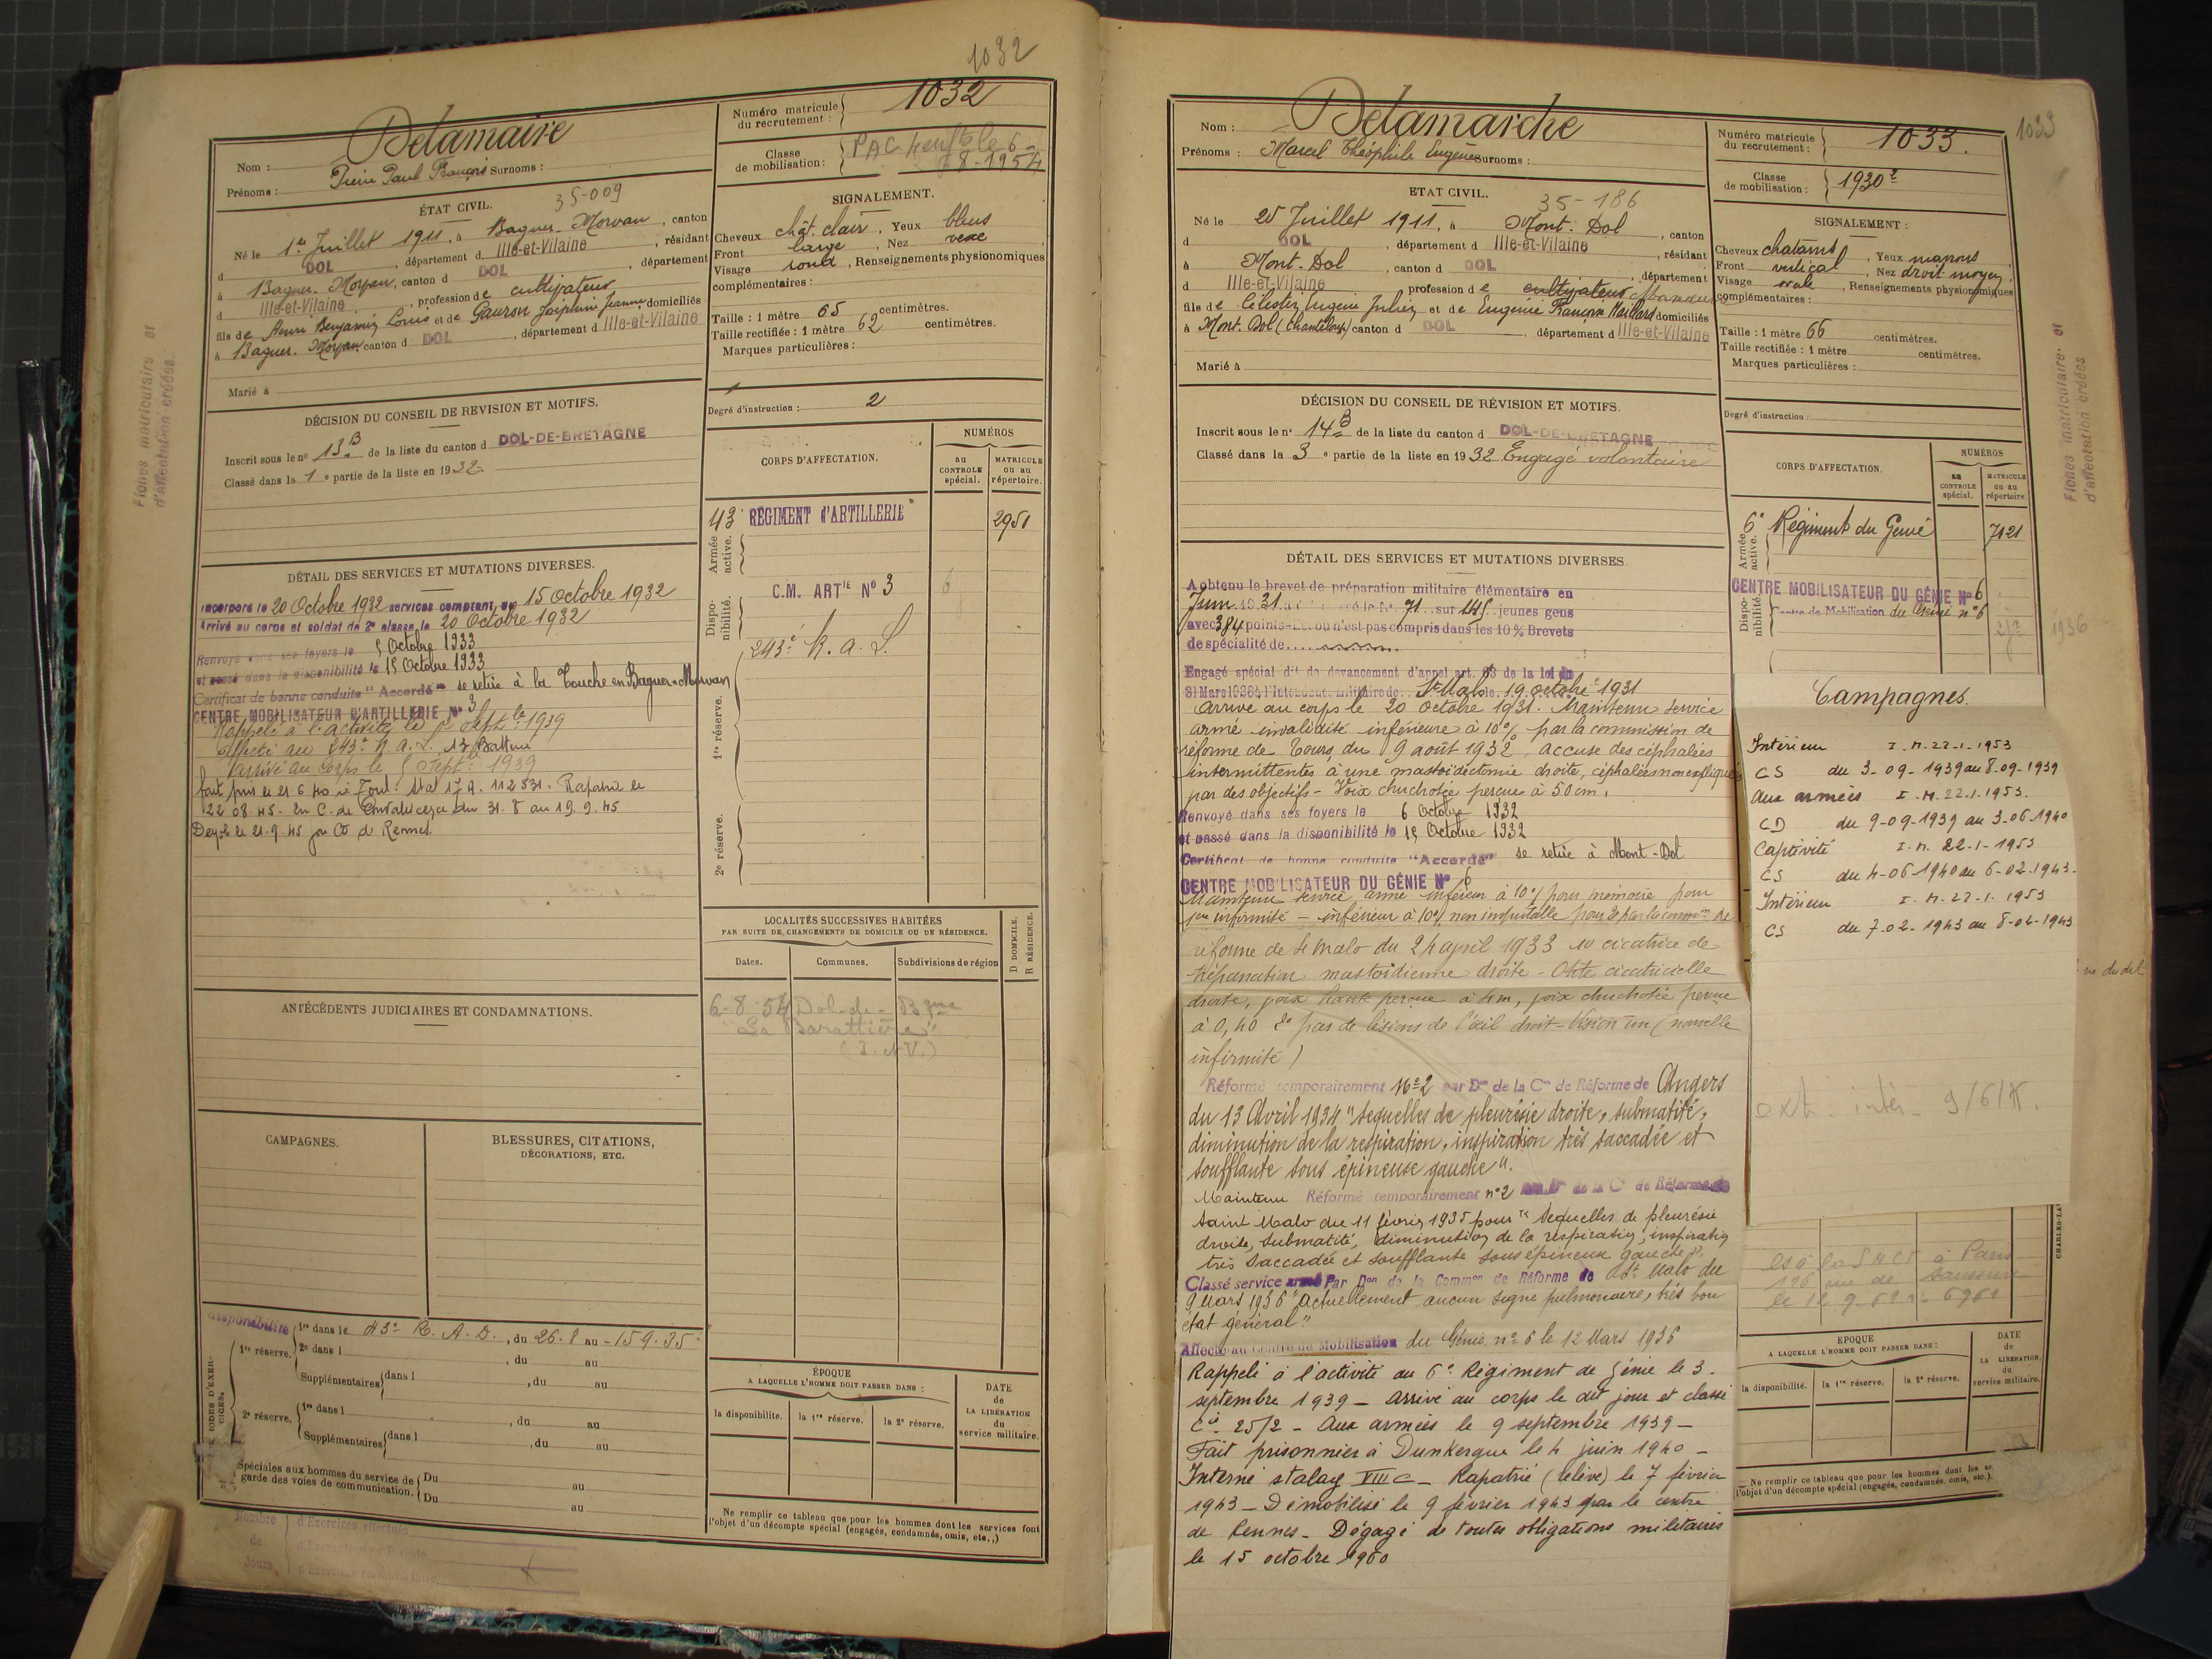 1032
Delamaire
Nom :
Prénoms : Pierre Paul François Surnoms :
Numéro matricule du recrutement : 1032
Classe de mobilisation : PAC
6-8-1954
ÉTAT CIVIL.
35-009
Né le 1er Juillet 1911, à Baguer-Morvan, canton
d DOL, département d Ille-et-Vilaine, résidant
à Baguer-Morvan, canton d DOL, département
d Ille-et-Vilaine, profession de cultivateur
fils de Henri Benjamin Louis et de Gauron Joséphine Jeanne domiciliés
à Baguer-Morvan, canton d DOL, département d Ille-et-Vilaine
Marié à
SIGNALEMENT.
Cheveux chât. clair, Yeux bleus
Front large, Nez vexe
Visage rond, Renseignements physionomiques
complémentaires :
Taille : 1 mètre 65 centimètres.
Taille rectifiée : 1 mètre 62 centimètres.
Marques particulières :
Degré d'instruction : 2
DÉCISION DU CONSEIL DE REVISION ET MOTIFS.
Inscrit sous le n° 13 B de la liste du canton d DOL-DE-BRETAGNE
Classé dans la 1e partie de la liste en 1932
CORPS D'AFFECTATION.
NUMÉROS
AU CONTROLE spécial.
MATRICULE ou au répertoire.
Armée active.
43e RÉGIMENT d'ARTILLERIE 2951
Disponibilité.
C.M. ARTie N° 3 6
243e R.A.L.
1re réserve.
2e réserve.
DÉTAIL DES SERVICES ET MUTATIONS DIVERSES.
Incorporé le 20 Octobre 1932 services comptant du 15 Octobre 1932
Arrivé au corps et soldat de 2e classe le 20 Octobre 1932
Renvoyé dans ses foyers le 5 Octobre 1933
et passé dans la disponibilité le 15 Octobre 1933
Certificat de bonne conduite "Accordé" se retire à la Touche en Baguer-Morvan
CENTRE MOBILISATEUR D'ARTILLERIE N° 3
Rappelé à l'activité le Septbre 1939
affecté au 243e R.A.L. 13e Batterie
arrivé au Corps le 5 Septbre 1939
fait pris le 21 6 40 à Toul. Stal 17 A. 112531. Rapatrié le
22 08 45. En C. de Convalescence du 31.8 au 19.9.45
le 21-9 45 par CD de Rennes.
LOCALITÉS SUCCESSIVES HABITÉES
PAR SUITE DE CHANGEMENTS DE DOMICILE OU DE RÉSIDENCE.
Dates. Communes. Subdivisions de région
D DOMICILE. R RÉSIDENCE.
6-8-54 Dol-de-Bgne
"La Barattière"
(I. et V.)
ANTÉCÉDENTS JUDICIAIRES ET CONDAMNATIONS.
CAMPAGNES.
BLESSURES, CITATIONS,
DÉCORATIONS, ETC.
Disponibilité
1re réserve. 1re dans le 43e R.A.D., du 26.8 au 15.9.35
2e dans l , du au
Supplémentaires dans l , du au
2e réserve. 1re dans l , du au
Supplémentaires dans l , du au
Spéciales aux hommes du service de garde des voies de communication. Du au
Du au
ÉPOQUE
A LAQUELLE L'HOMME DOIT PASSER DANS :
la disponibilité. la 1re réserve. la 2e réserve.
DATE de LA LIBÉRATION du service militaire.
Ne remplir ce tableau que pour les hommes dont les services font
l'objet d'un décompte spécial (engagés, condamnés, omis, etc.,)
Nombre de Jours
d'Exercices effectués
Fiches matriculaire et
d'affectation créées
1033
Delamarche
Nom :
Prénoms : Marcel Théophile Eugène Surnoms :
Numéro matricule du recrutement : 1033.
Classe de mobilisation : 1930e
ETAT CIVIL.
35-186
Né le 25 Juillet 1911, à Mont-Dol, canton
d DOL, département d Ille-et-Vilaine, résidant
à Mont-Dol, canton d DOL, département
d Ille-et-Vilaine, profession de cultivateur
fils de Célestin Eugène Julien et de Eugénie Françoise Maillard domiciliés
à Mont-Dol (Chanteloup) canton d DOL, département d Ille-et-Vilaine
Marié à
SIGNALEMENT :
Cheveux chatains, Yeux marrons
Front vertical, Nez droit moyen
Visage ovale, Renseignements physionomiques
complémentaires :
Taille : 1 mètre 66 centimètres.
Taille rectifiée : 1 mètre centimètres.
Marques particulières :
Degré d'instruction :
DÉCISION DU CONSEIL DE RÉVISION ET MOTIFS.
Inscrit sous le n° 14 B de la liste du canton d DOL-DE-BRETAGNE
Classé dans la 3e partie de la liste en 1932 Engagé volontaire
CORPS D'AFFECTATION.
NUMÉROS
AU CONTROLE spécial.
MATRICULE ou au répertoire.
Armée active.
6e Régiment du Génie 7121
CENTRE MOBILISATEUR DU GÉNIE N° 6
Disponibilité.
Centre de Mobilisation du Génie n° 6
1936
DÉTAIL DES SERVICES ET MUTATIONS DIVERSES.
A obtenu le brevet de préparation militaire élémentaire en
Juin 1931 le N° 71 sur 145 jeunes gens
avec 384 points-Est ou n'est pas compris dans les 10% Brevets
de spécialité de
Engagé spécial dit de devancement d'appel art. 63 de la loi du
31 Mars 1928 à l'Intendance militaire de St Malo le 19 octobre 1931
Arrivé au corps le 20 octobre 1931. Maintenu service
armé invalidité inférieure à 10% par la commission de
réforme de Tours du 9 août 1932, accuse des céphalées
intermittentes à une mastoïdectomie droite, céphalées non expliquées
par des objectifs - Voix chuchotée perçue à 50 cm.
Renvoyé dans ses foyers le 6 Octobre 1932
et passé dans la disponibilité le 15 Octobre 1932
Certificat de bonne conduite "Accordé" se retire à Mont-Dol
CENTRE MOBILISATEUR DU GÉNIE N° 6
Maintenu service armé inférieur à 10% pour mémoire pour
1ère infirmité - inférieur à 10% non imputable pour 2e par la common de
réforme de St Malo du 24 april 1933 1° cicatrice de
trépanation mastoïdienne droite - Otite cicatricielle
droite, voix haute perçue à 4m, voix chuchotée perçue
à 0,40 2° pas de lésions de l'œil droit - Vision un (nouvelle
infirmité)
Réformé temporairement N° 2 par Don de la Con de Réforme de Angers
du 13 Avril 1934 "séquelles de pleurésie droite, submatité,
diminution de la respiration, inspiration très saccadée et
soufflante sous épineuse gauche".
Maintenu Réformé temporairement n° 2 par Don de la Con de Réforme de
Saint Malo du 11 février 1935 pour "séquelles de pleurésie
droite, submatité, diminution de la respiration, inspiration
très saccadée et soufflante sous épineux gauche".
Classé service armé Par Don de la Common de Réforme de St Malo du
9 Mars 1936 "actuellement aucun signe pulmonaire, très bon
état général"
Affecté au Centre de Mobilisation du Génie n° 6 le 12 Mars 1936
Rappelé à l'activité au 6e Régiment de Génie le 3
septembre 1939 - arrivé au corps le dit jour et classé
Cie 25/2 - Aux armées le 9 septembre 1939 -
Fait prisonnier à Dunkerque le 4 juin 1940 -
Interné stalag VIII C - Rapatrié (relève) le 7 février
1943 - Démobilisé le 9 février 1943 par le centre
de Rennes - Dégagé de toutes obligations militaires
le 15 octobre 1960
Campagnes.
Intérieur I.M. 22-1-1953
CS du 3-09-1939 au 8-09-1939
Aux armées I.M. 22.1.1953.
CD du 9-09-1939 au 3-06-1940
Captivité I.M. 22-1-1953
CS du 4-06-1940 au 6-02-1943.
Intérieur I.M. 22-1-1953
CS du 7-02-1943 au 8-02-1943
à la SNCF à Paris
EPOQUE
A LAQUELLE L'HOMME DOIT PASSER DANS :
la disponibilité. la 1re réserve. la 2e réserve.
DATE de LA LIBÉRATION du service militaire.
Ne remplir ce tableau que pour les hommes dont les se
l'objet d'un décompte spécial (engagés, condamnés, omis, etc.).
Fiches matriculaire et
d'affectation créées